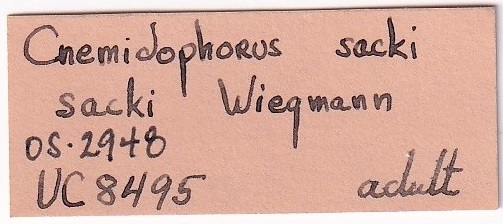 Cnemidophorus sacki
sacki Wiegmann
OS·2948
UC 8495 adult